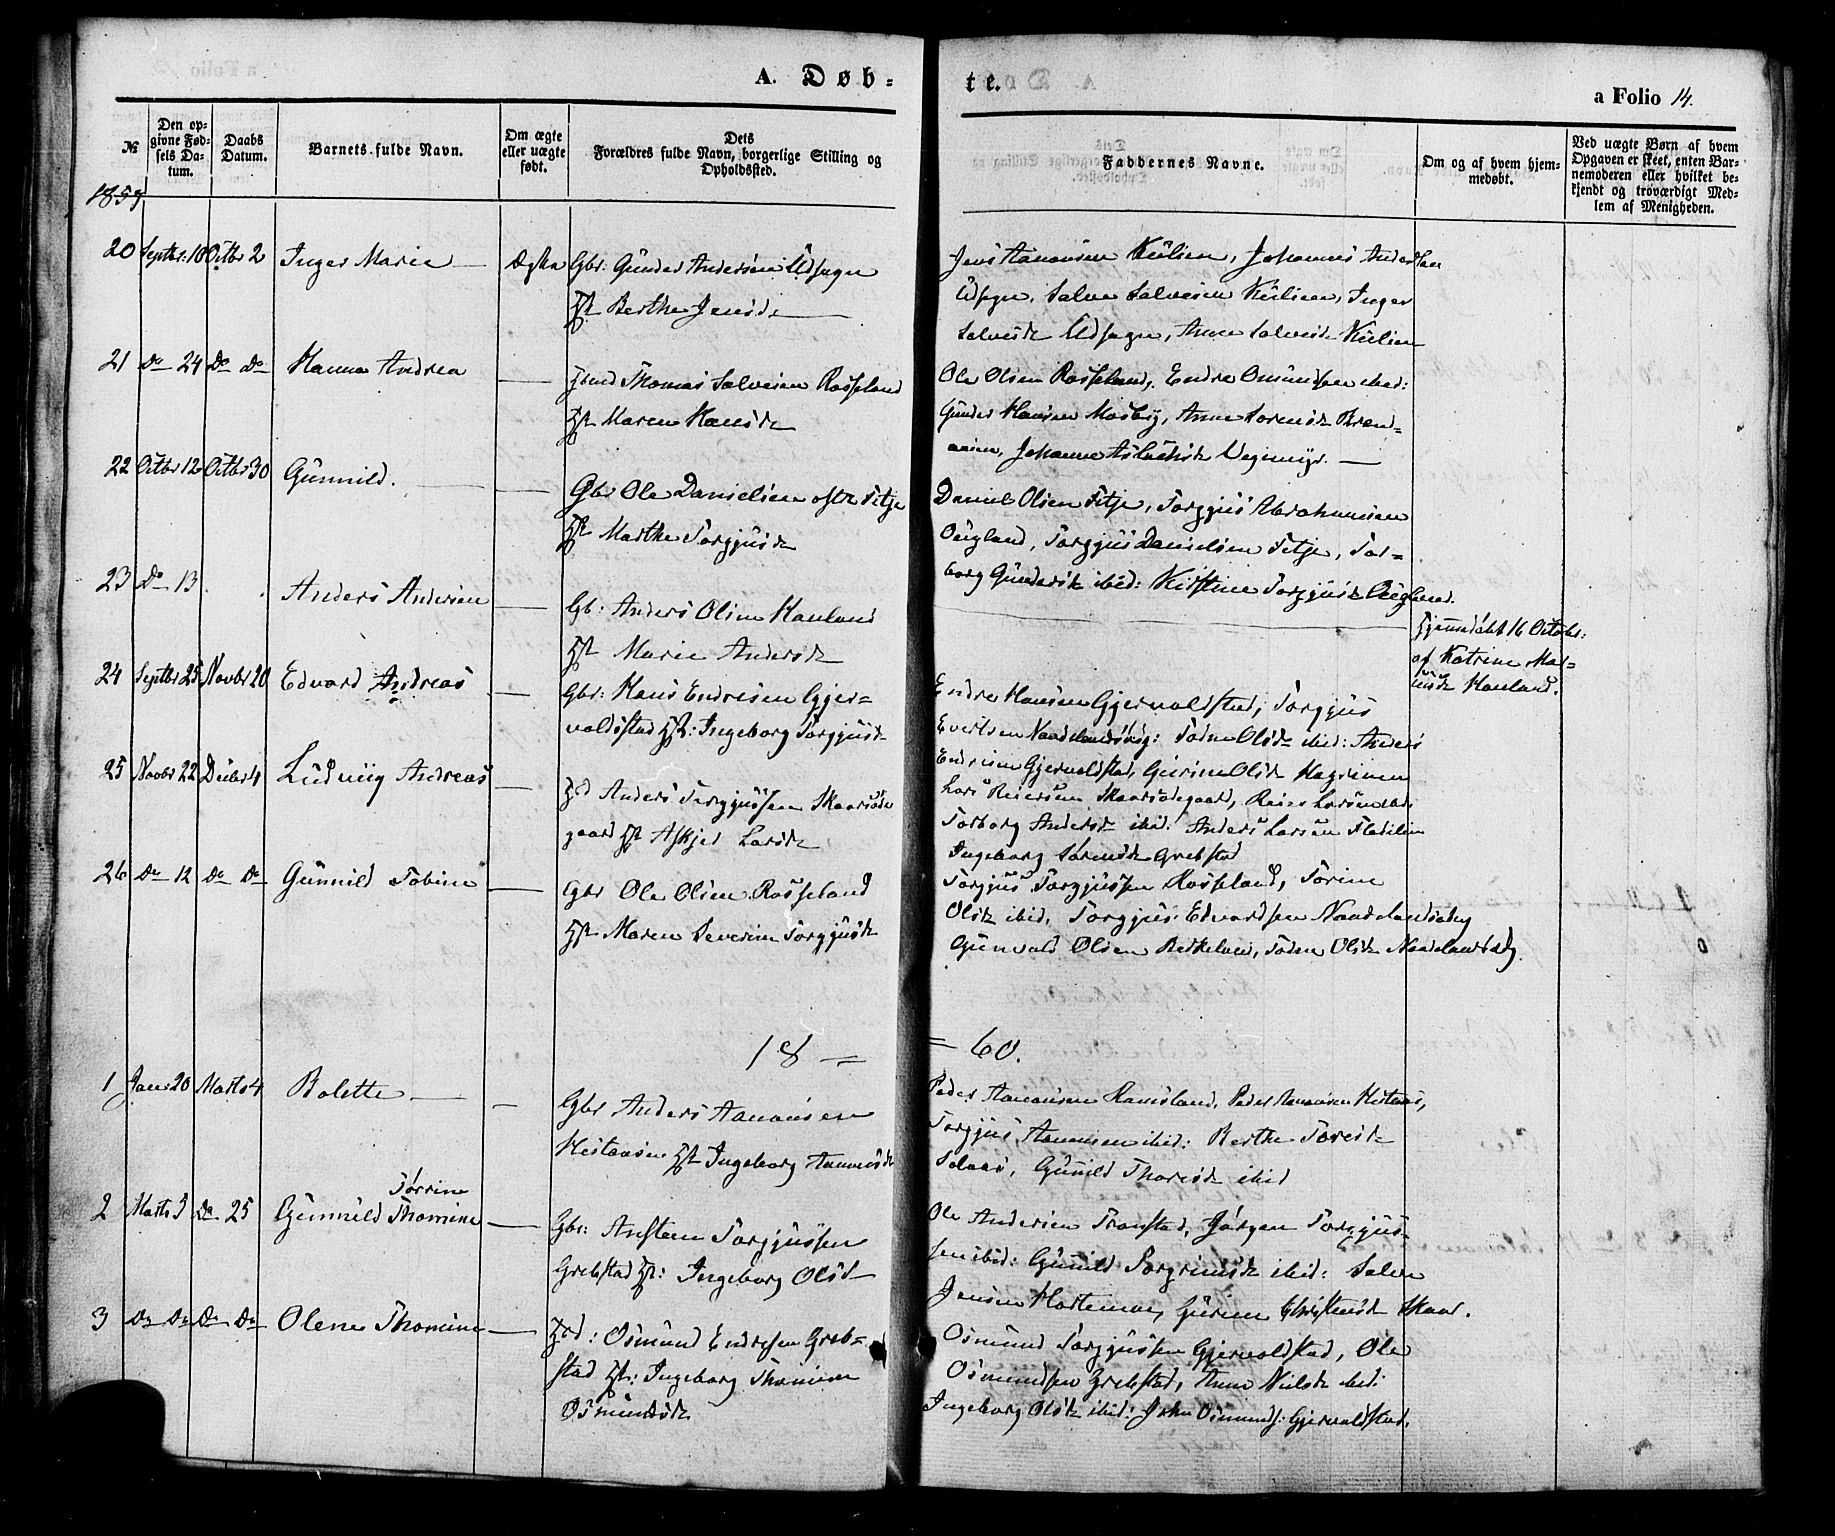 A. Døb=
te.
a Folio 14.
№
Den op-
givne Fød-
sels Da-
tum.
Daabs
Datum.
Barnets fulde Navn.
Om ægte
eller uægte
født.
Dets
Forældres fulde Navn, borgerlige Stilling og
Opholdssted.
Faddernes Navne.
Om og af hvem hjem-
medøbt.
Ved uægte Børn af hvem
Opgaven er skeet, enten Bar-
nemoderen eller hvilket be-
kjendt og troværdigt Med-
lem af Menigheden.
1859
20 Septbr: 10 Octbr 2 Inger Marie — Ægte Gbr: Gunder Andersen Udsogn
Hst Berthe Jensd. —
Jens Aanonsen Kulien, Johannes Andersen
Udsogn, Salve Salvesen Kulien, Inger
Salvesdr Udsogn, Anne Salvesdr Kulien
21 Do 24 Do Do Hanna Andrea — Hbmd Thomas Salvesen Rosseland
Hst Maren Hansdr
Ole Olsen Rosseland, Endre Omundsen ibid:
Gunder Hansen Mosby, Anne Sorensdr
Johanne Aslaksdr Vegemyr. —
22 Octbr 12 Octbr 30 Gunnild. — — Gbr Ole Danielsen østre Fitje
Hst Marthe Torgjusdr
Daniel Olsen Fitje, Torgjus Abrahamsen
Øugland, Torgjus Danielsen Fitje, Tor=
borg Gundersdr ibid: Kirstine Torgjusdr Øugland.
23 Do 13 Anders Andersen — Gb: Anders Olsen Hauland
Hst Marie Andersdr
Hjemmdøbt 16 Octobr:
af Katrine Mar=
Hauland.
24 Septbr 25 Novbr 20 Edvard Andreas — Gbr: Hans Endresen Gjer=
valdstad Hst: Ingeborg Torgjusdr
Endre Hansen Gjervoldstad, Torgjus
Evertsen : Todne Olsdr ibid: Anders
Endresen Gjervoldstad, Gurine Olsdr
25 Novbr 22 Decbr 4 Ludvig Andreas — Anders Torgjussen Skaarsøde
gaard Hst Askjer Larsdr
Lars Reiersen Skaarsødegaard, Reier Larsen ibd.
Torborg Andersdr ibid. Anders Larsen
Ingeborg Sørensdr Grebstad
26 Do 12 Do Do Gunnild Tobine — Gbr Ole Olsen Rosseland
Hst Maren Severine Torgjusdr
Torgjus Torgjussen Rosseland, Torine
Olsdr ibid, Torgjus Edvardsen
Gunvald Olsen Birkeland, Todne Olsdr
18 =
= 60.
1 Janr 20 Marts 4 Bolette — — Gbr Anders Aanonsen
Hestaasen Hst Ingeborg Aanensdr
Peder Aanonsen Ramsland, Peder Aanonsen Hestaas,
Torgjus Aanonsen ibid: Berthe Toresdr
Solaas, Gunild Thoresdr ibid
Torrine
2 Marts 3 Do 25 Gunnild Thomine — Gbr: Ansten Torgjussen
Grebstad Hst: Ingeborg Olsd
Ole Andersen Tronstad, Jørgen Torgjus-
sen ibid: Gunild Torgrimsdr ibid: Salve
Jensen Hortemo, Gurine Christensdr Skaar.
3 Do Do Do Do Olene Thomine — Osmund Endresen Greb=
stad Hst: Ingeborg Thomine
Osmundsdr
Osmund Torgjussen Gjervoldstad, Ole
Osmundsen Grebstad, Anne Nielsdr ibid:
Ingeborg Olsdr ibid: John Osmunds: Gjervoldstad.